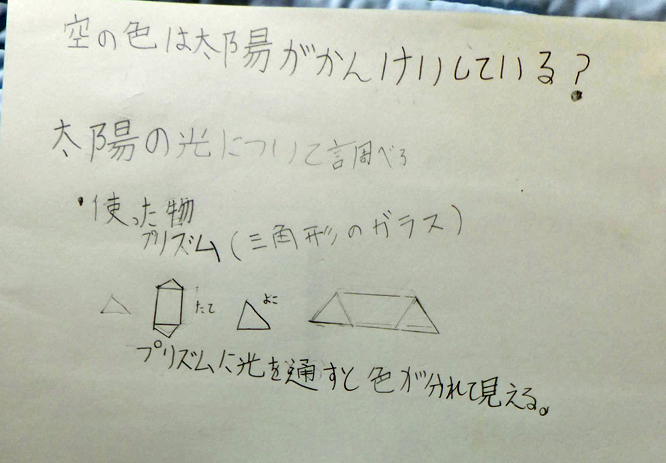 空の色は太陽がかんけいしている?
太陽の光について調べろ
・使った物
プリズム(三角形のガラス)
たて
よこ
プリズムに光を通すと色が分れて見える。